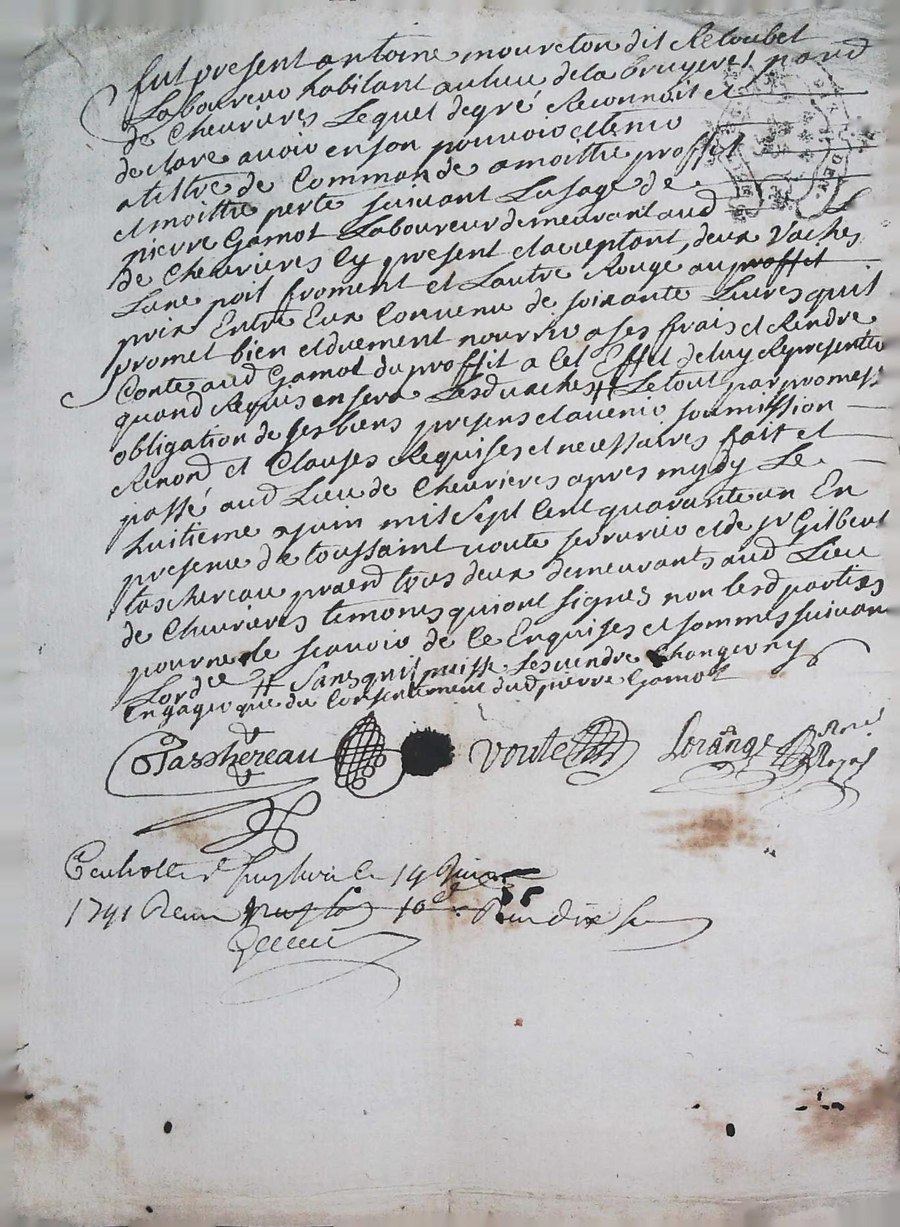 fut present antoine moureton dit Reloubet
Laboureur habitant au lieu de la bruyere paroid
de Cheurieres Lequel degré Reconnoit et
declare avoir en son pouvoir et tenir
a tiltre de Commande a moittié proffit
et moittié perte suivant Lusage de
pierre Gamot Laboureur demeurant aud L
de Cheurieres Cy present et acceptant, deux Vaches
Lune poil froment et Lautre Rouge au proffit
prix Entre Eux Convenu de soixante Livres quil
promet bien et duement nourrir a ses frais et Rendre
Conte aud Gamot du proffit a Cet Effet de luy Representer
quand Requis en sera Lesd vaches # Le tout par promesse
obligation de ses biens presens et avenir soumission
Renond et Clauses Requises et necessaires fait et
passé aud Lieu de Cheurieres apres mydy Le
huitieme juin mil sept Cent quarante un En
presence de toussaint voute serrurier et de sr Gilbert
taschereau praticd tous deux demeurants aud Lieu
de Cheurieres temoins qui ont signes non lesd parties
pour ne le scavoir de Ce Enquises et sommes suivant
Lordce # Sans quil puisse Les vendre Changer ny
Engager que du Consentement dud pierre Gamot
Taschereau voute Lorange Nore Royal
le 14 Juin
1741 Recu dix sols